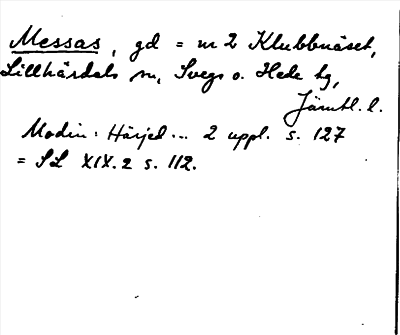 Messas, gd = nr 2 Klubbnäset,
Lillhärdals sn, Svegs o. Hede tg,
Jämtl. l.
Modin: Härjed... 2 uppl. s. 127
= SL XIX.2 s. 112.